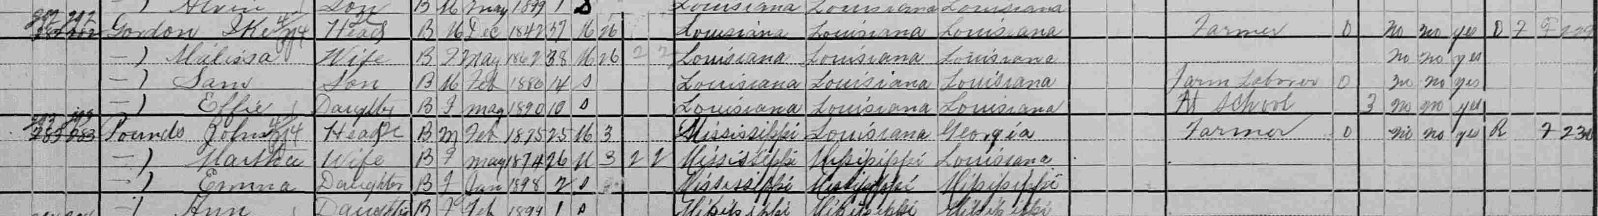 Alvin Son B M May 1899 1 S Louisiana Louisiana Louisiana
292 292 Gordon Ike Head B M Dec 1842 57 M 26 Louisiana Louisiana Louisiana Farmer 0 No No yes O F F
—) Milissa Wife B F May 1862 38 M 26 2 2 Louisiana Louisiana Louisiana No No yes
—) Sam Son B M Feb 1886 14 S Louisiana Louisiana Louisiana Farm Laborer 0 No No yes
—) Effie Daughter B F May 1890 10 S Louisiana Louisiana Louisiana At School 3 No No yes
293 293 Pounds John Head B M Feb 1875 25 M 3 Mississippi Louisiana Georgia Farmer 0 No No yes R F 230
—) Marthee Wife B F May 1874 26 M 3 2 2 Mississippi Mississippi Louisiana
—) Emma Daughter B F Jan 1898 2 S Mississippi Mississippi Mississippi
—) Ann Daughter B F Feb 1899 1 S Mississippi Mississippi Mississippi